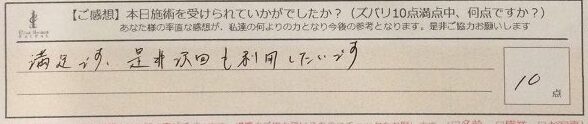 【ご感想】本日施術を受けられていかがでしたか？（ズバリ10点満点中、何点ですか？）
あなた様の率直な感想が、私達の何よりの力となり今後の参考となります。是非ご協力お願いします
満足です、是非次回も利用したいです
10
点